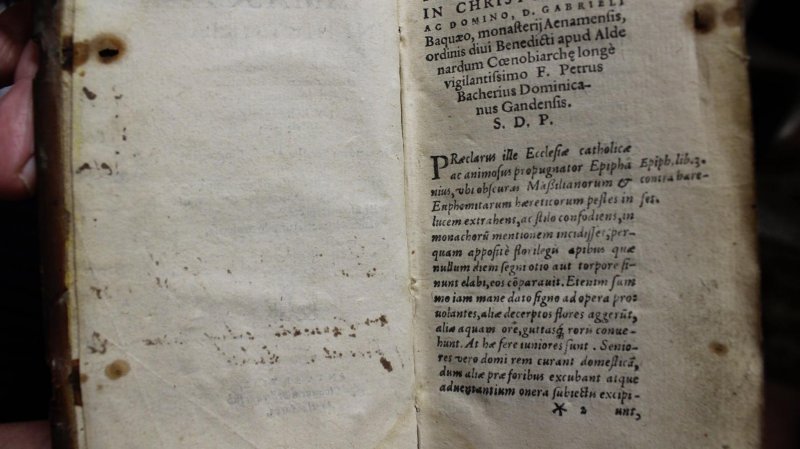 IN CHRIST
AC DOMINO, D. GABRIELI
Baquæo, monasterij Aenamensis,
ordinis diui Benedicti apud Alde
nardum Cœnobiarchę longè
vigilantissimo F. Petrus
Bacherius Dominica-
nus Gandensis.
S. D. P.
PRæclarus ille Ecclesiæ catholicæ
ac animosus propugnator Epiphā
nius, vbi obscuras Maßilianorum &
Enphomitarum hæreticorum pestes in
lucem extrahens, ac stilo confodiens, in
monachorū mentionem incidisset, per-
quam appositè florilegū apibus quæ
nullum diem segni otio aut torpore si-
nunt elabi, eos cōparauit. Etenim sum
mo iam mane dato signo ad opera pro
uolantes, aliæ decerptos flores aggerūt,
aliæ aquam ore, guttasq́ roris conue-
hunt. At hæ fere iuniores sunt. Senio-
res vero domi rem curant domesticā,
dum aliæ præ foribus excubant atque
aduentantium onera subiectis excipi-
* 2 unt,
Epiph. lib. 3.
contra hære-
ses.